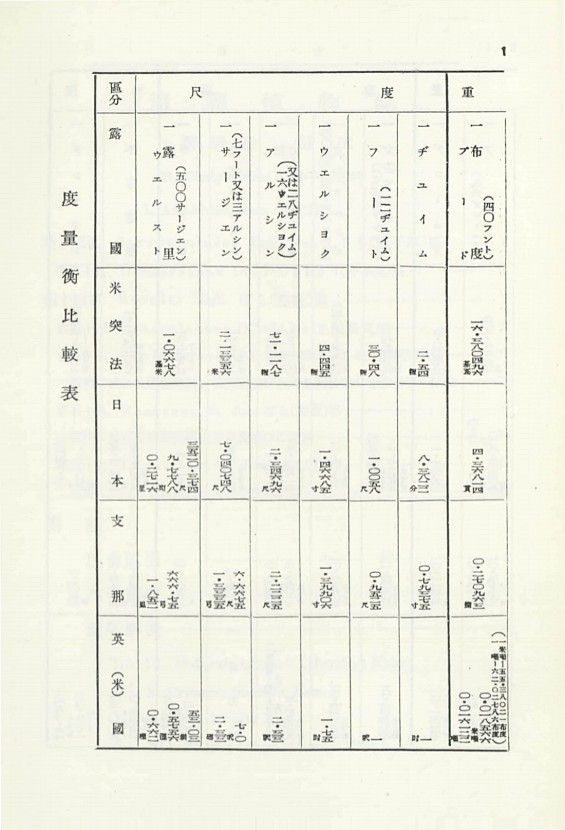 1
度量衡比較表
區分
露國
米突法
日本
支那
英(米)國
尺度
一露里
ウエルスト
(五〇〇サージエン)
一・〇六六七八
基米
三五二〇・三七四尺
九・七七八八町
〇・二七一六里
六六六・七五弓
一・八五二里
〇・六六二哩
一サージエン
(七フート又は三アルシン)
二・一三三五六米
七・〇四〇七四八尺
六・六六七五尺
一・三三三五弓
七・〇呎
二・三三碼
一アルシン
(又は二八ヂユイム
一六ウエルシヨク)
七一・一一八七糎
二・三四六九六尺
二・二二三五尺
二・三三呎
一ウエルシヨク
四・四四五糎
一・四六六八五寸
一・三九九〇六寸
一・七五吋
一フート
(一二ヂユイム)
三〇・四八糎
一・〇〇五八尺
〇・九五二五尺
一呎
一ヂユイム
二・五四糎
八・三八二分
〇・七九三七五寸
一吋
重
一布度
プード
(四〇フント)
一六・三八〇四九六基瓦
四・三六八一四貫
〇・二七〇九六三擔
(一米噸=五五・三八〇二一布度
一噸=六二・〇二七八六布度)
〇・〇一八五六六米噸
〇・〇一六一二二噸